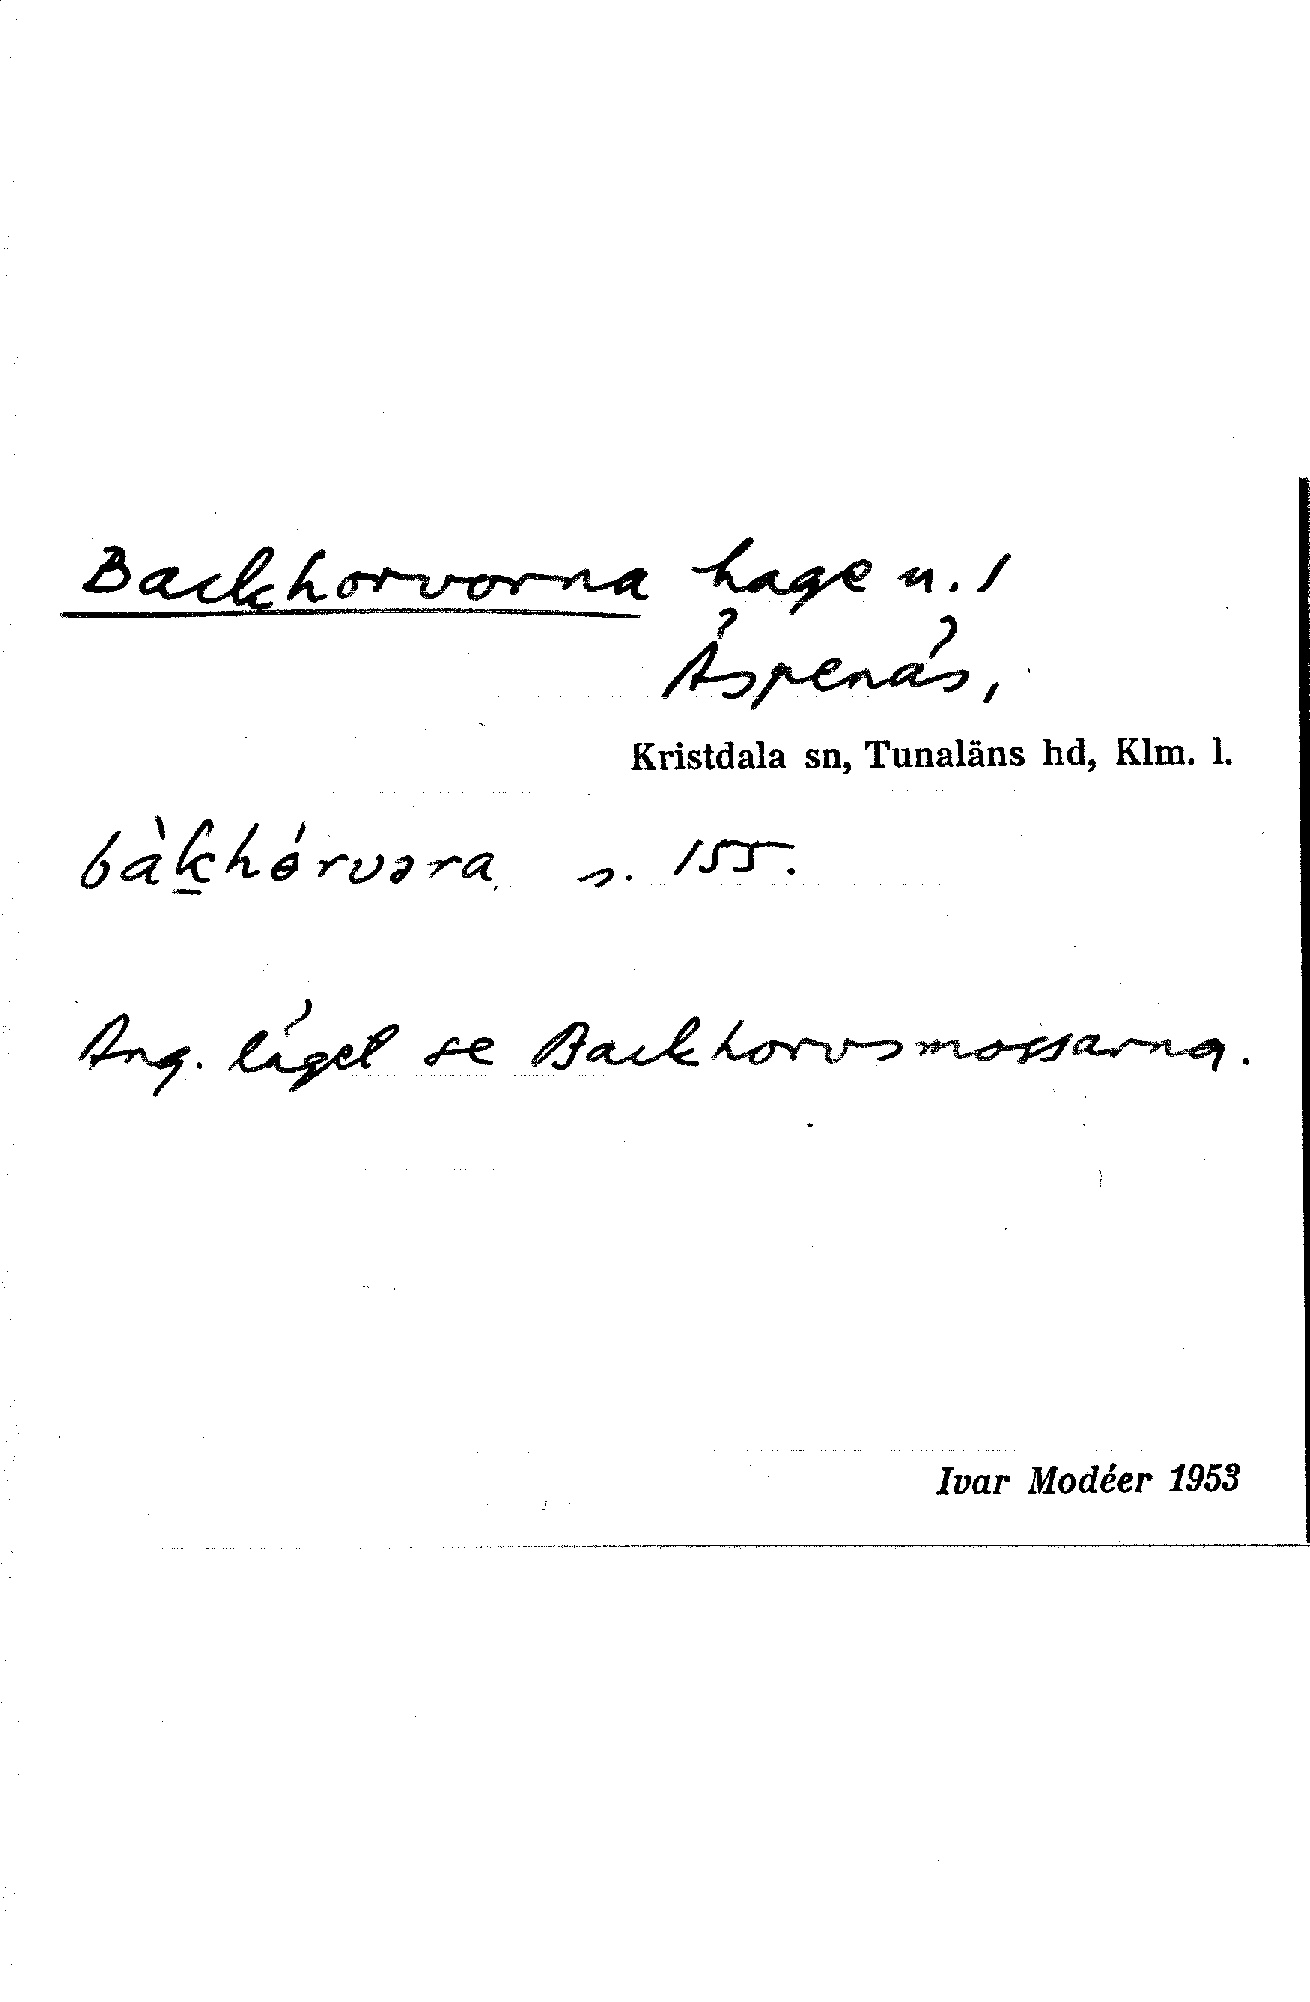 Backhorvorna hage u. 1
Äspenäs,
Kristdala sn, Tunaläns hd, Klm. l.
bàk̲hɵ́rvəra s. 155.
Ang. läget se Backhorvsmossarna.
Ivar Modéer 1953